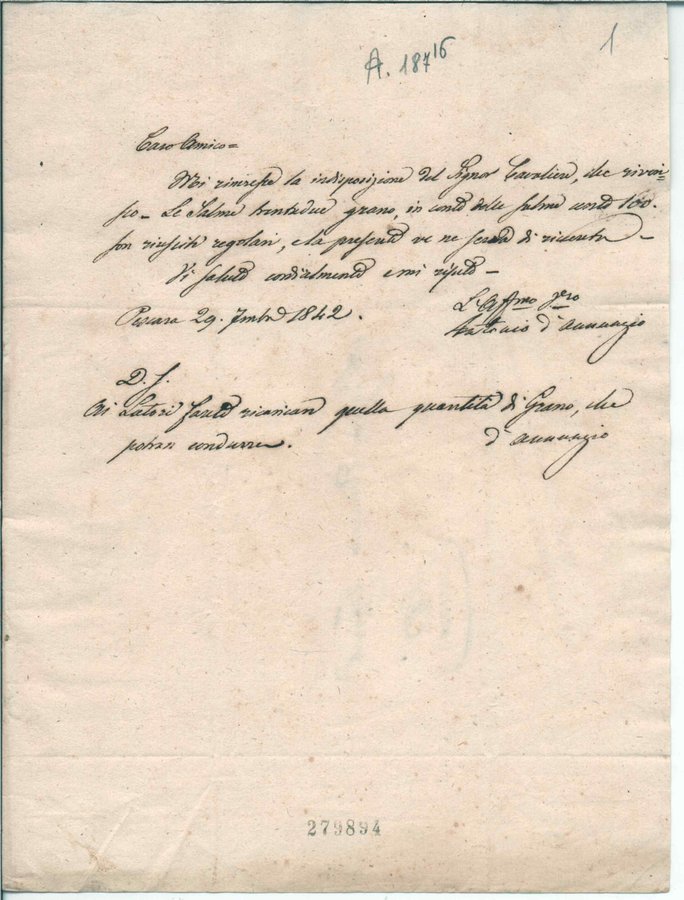 A. 187 16
1
Caro Amico=
Mi rincresce la indisposizione del Signor Cavaliere, che riveri-
sco_ Le Salme trentadue grano, in conto delle salme cento 100.
son riuscite regolari, e la presente ve ne servirà di ricevuta_
Vi saluto cordialmente e mi ripeto_
Pescara 29. 7mbre 1842.
L'Affmo
Antonio d'Annunzio
P. S.
Ai Latori farete caricare quella quantità di Grano, che
potran condurre.
d'Annunzio
279894